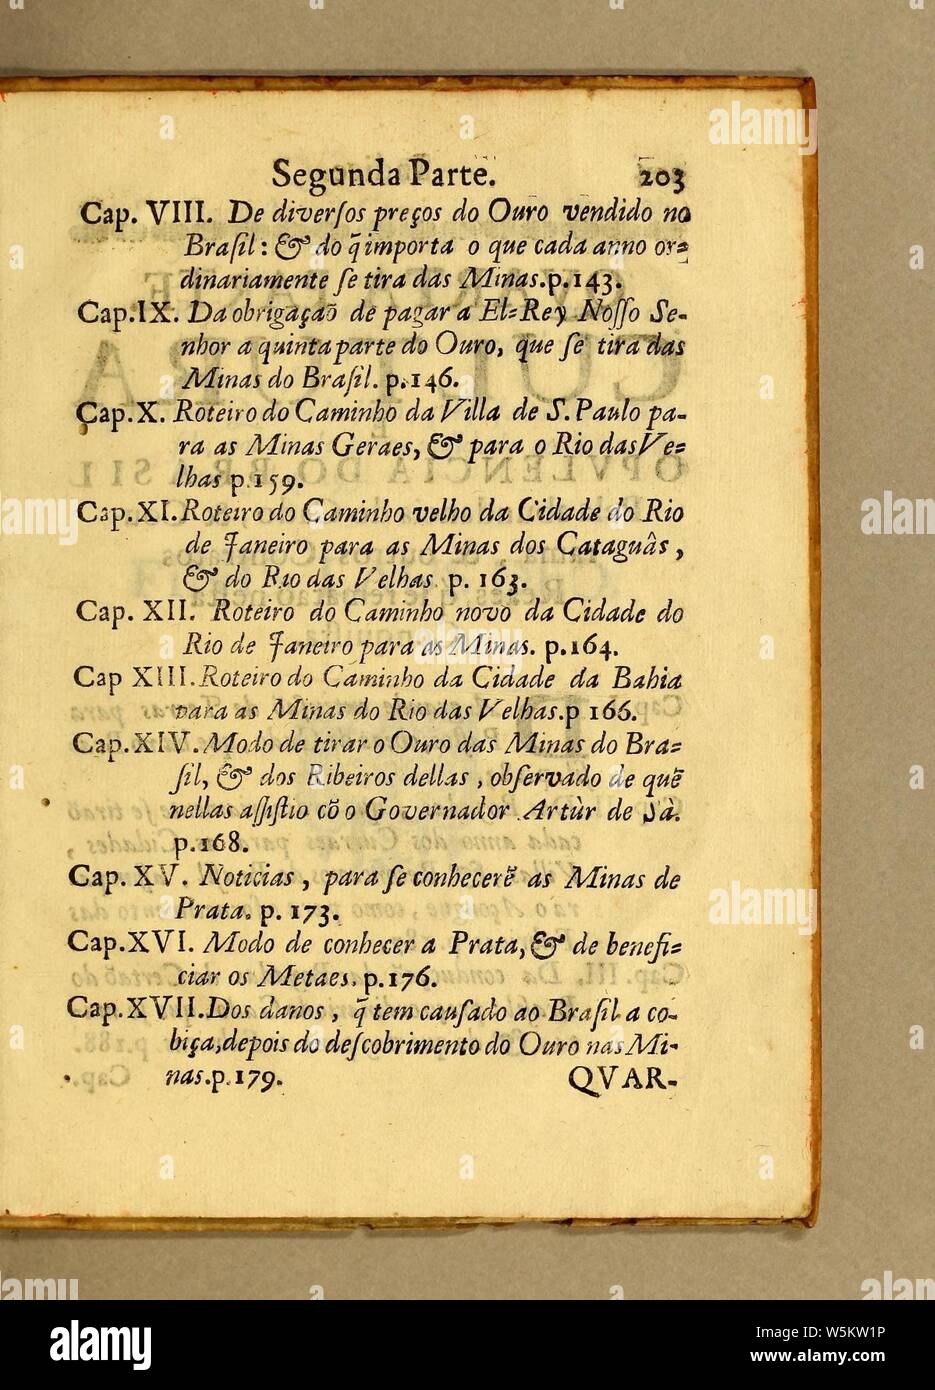 Segunda Parte. 203
Cap. VIII. De diverſos preços do Ouro vendido no
Braſil: & do q̃ importa o que cada anno or-
dinariamente ſe tira das Minas.p.143.
Cap.IX. Da obrigaçaõ de pagar a El-Rey Noſſo Se-
nhor a quinta parte do Ouro, que ſe tira das
Minas do Braſil. p.146.
Cap.X. Roteiro do Caminho da Villa de S. Paulo pa-
ra as Minas Geraes, & para o Rio das Ve-
lhas p.159.
Cap.XI.Roteiro do Caminho velho da Cidade do Rio
de Janeiro para as Minas dos Cataguâs,
& do Rio das Velhas. p. 163.
Cap. XII. Roteiro do Caminho novo da Cidade do
Rio de Janeiro para as Minas. p.164.
Cap XIII.Roteiro do Caminho da Cidade da Bahia
para as Minas do Rio das Velhas.p 166.
Cap.XIV.Modo de tirar o Ouro das Minas do Bra-
ſil, & dos Ribeiros dellas, obſervado de quẽ
nellas aſſiſtio cõ o Governador Artùr de Sà.
p.168.
Cap. XV. Noticias, para ſe conhecerẽ as Minas de
Prata. p. 173.
Cap.XVI. Modo de conhecer a Prata, & de benefi-
ciar os Metaes. p.176.
Cap.XVII.Dos danos, q̃ tem cauſado ao Braſil a co-
biça,depois do deſcobrimento do Ouro nas Mi-
nas.p.179. QVAR-
alamy
Image ID: W5KW1P
www.alamy.com